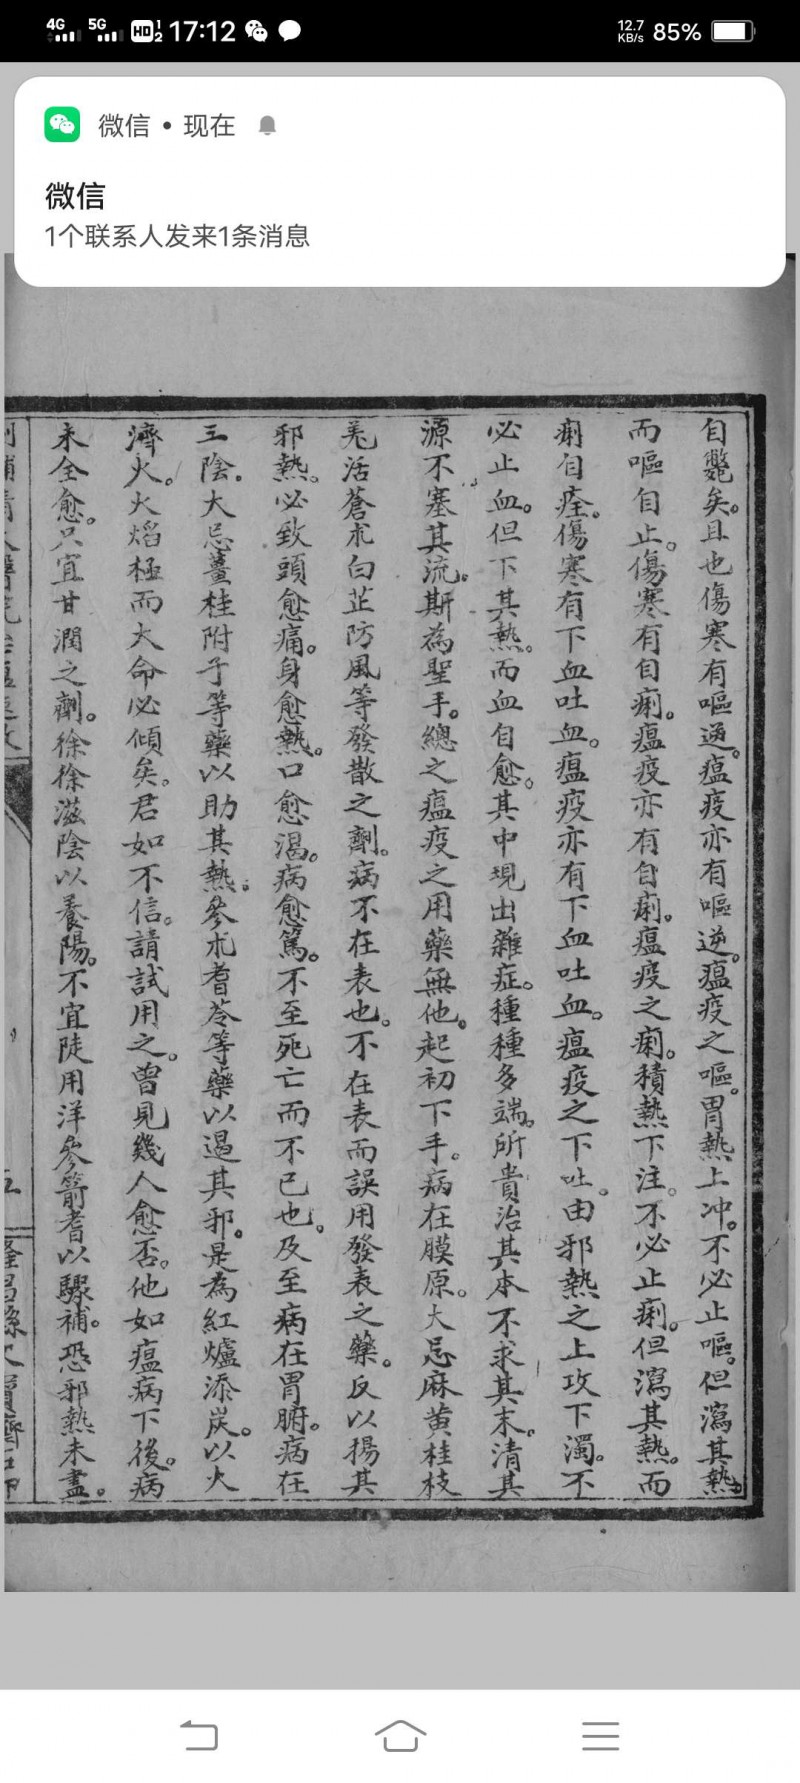 4G 5G HD 1 2 17:12 12.7 KB/s 85%
微信 • 现在
微信
1个联系人发来1条消息
自斃矣。且也傷寒有嘔逆。瘟疫亦有嘔逆。瘟疫之嘔。胃熱上冲。不必止嘔。但瀉其熱。
而嘔自止。傷寒有自痢。瘟疫亦有自痢。瘟疫之痢。積熱下注。不必止痢。但瀉其熱。而
痢自痊。傷寒有下血吐血。瘟疫亦有下血吐血。瘟疫之下吐。由邪熱之上攻下濁。不
必止血。但下其熱。而血自愈。其中現出雜症。種種多端。所貴治其本不求其末。清其
源不塞其流。斯為聖手。總之瘟疫之用藥無他。起初下手。病在膜原。大忌麻黄桂枝
羌活蒼朮白芷防風等發散之劑。病不在表也。不在表而誤用發表之藥。反以揚其
邪熱。必致頭愈痛。身愈熱。口愈渴。病愈篤。不至死亡而不已也。及至病在胃腑。病在
三陰。大忌薑桂附子等藥以助其熱。參朮耆苓等藥以遏其邪。是為紅爐添炭。以火
濟火。火焰極而大命必傾矣。君如不信。請試用之。曾見幾人愈否。他如瘟病下後。病
未全愈。只宜甘潤之劑。徐徐滋陰以養陽。不宜陡用洋參箭耆以驟補。恐邪熱未盡。